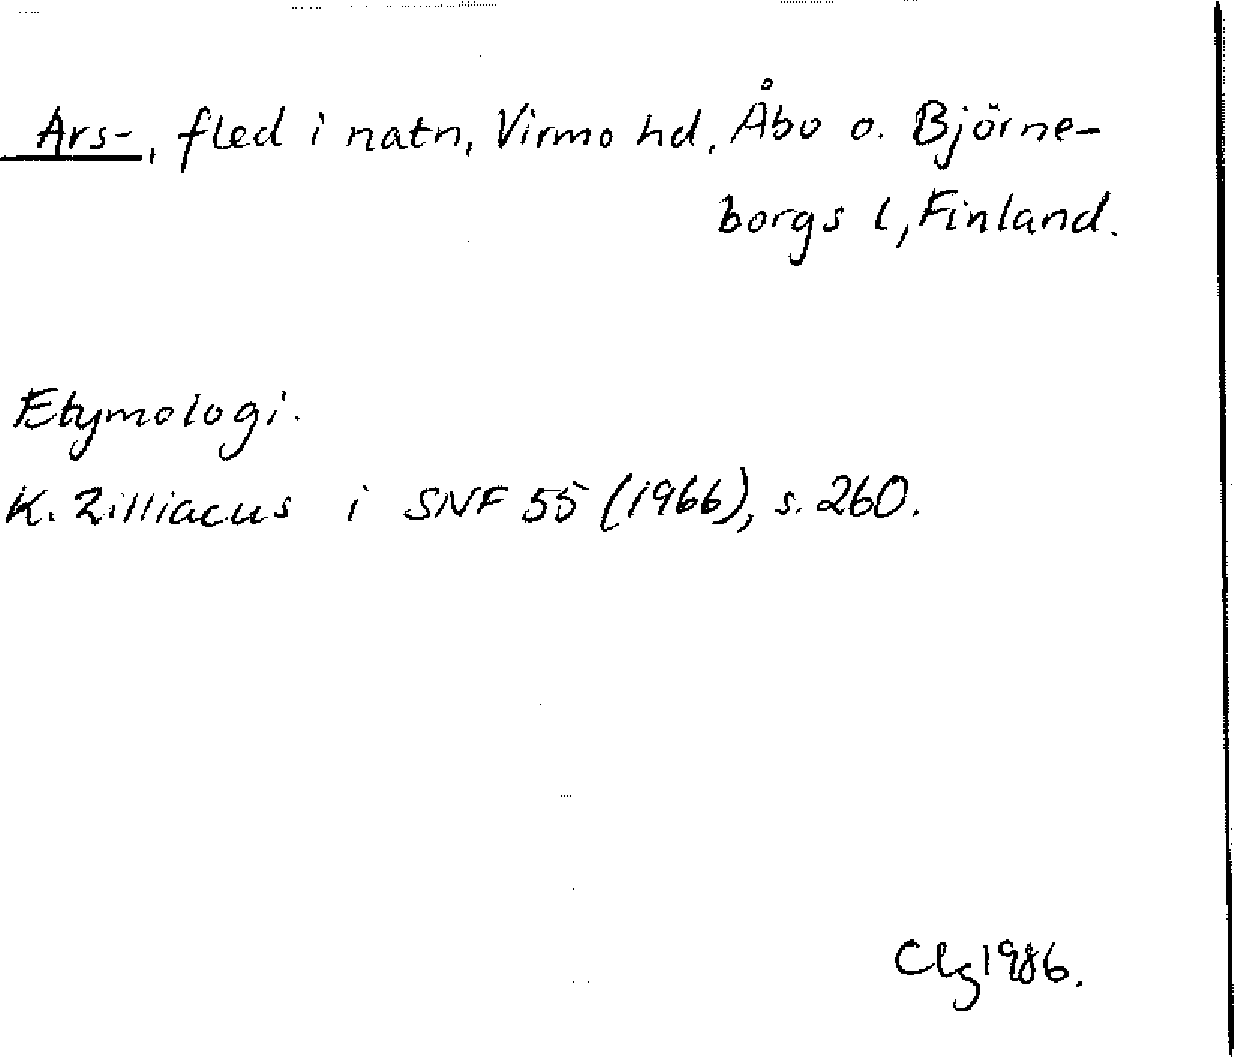 Ars-, fled i natn, Virmo hd, Åbo o. Björne-
borgs l, Finland.
Etymologi.
K. Zilliacus i SNF 55 (1966), s. 260.
Clg 1986.